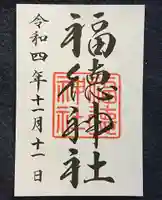 福徳神社
令和四年十一月十一日